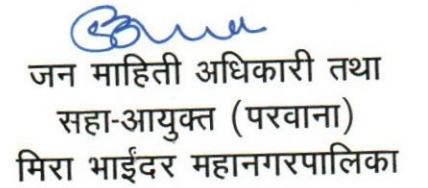 जन माहिती अधिकारी तथा
सहा-आयुक्त (परवाना)
मिरा भाईंदर महानगरपालिका